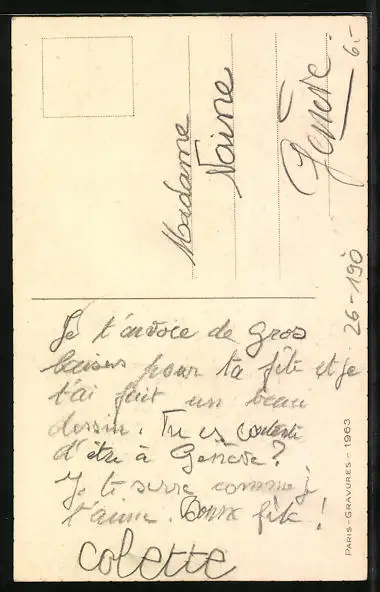 Madame
Naine
Genève.
6.-
26-190
Je t'envoie de gros
baisers pour ta fête et je
t'ai fait un beau
dessin. Tu es contente
d'être à Genève?
Je te serre comme j
t'aime. Bonne fête!
colette
PARIS-GRAVURES - 1963